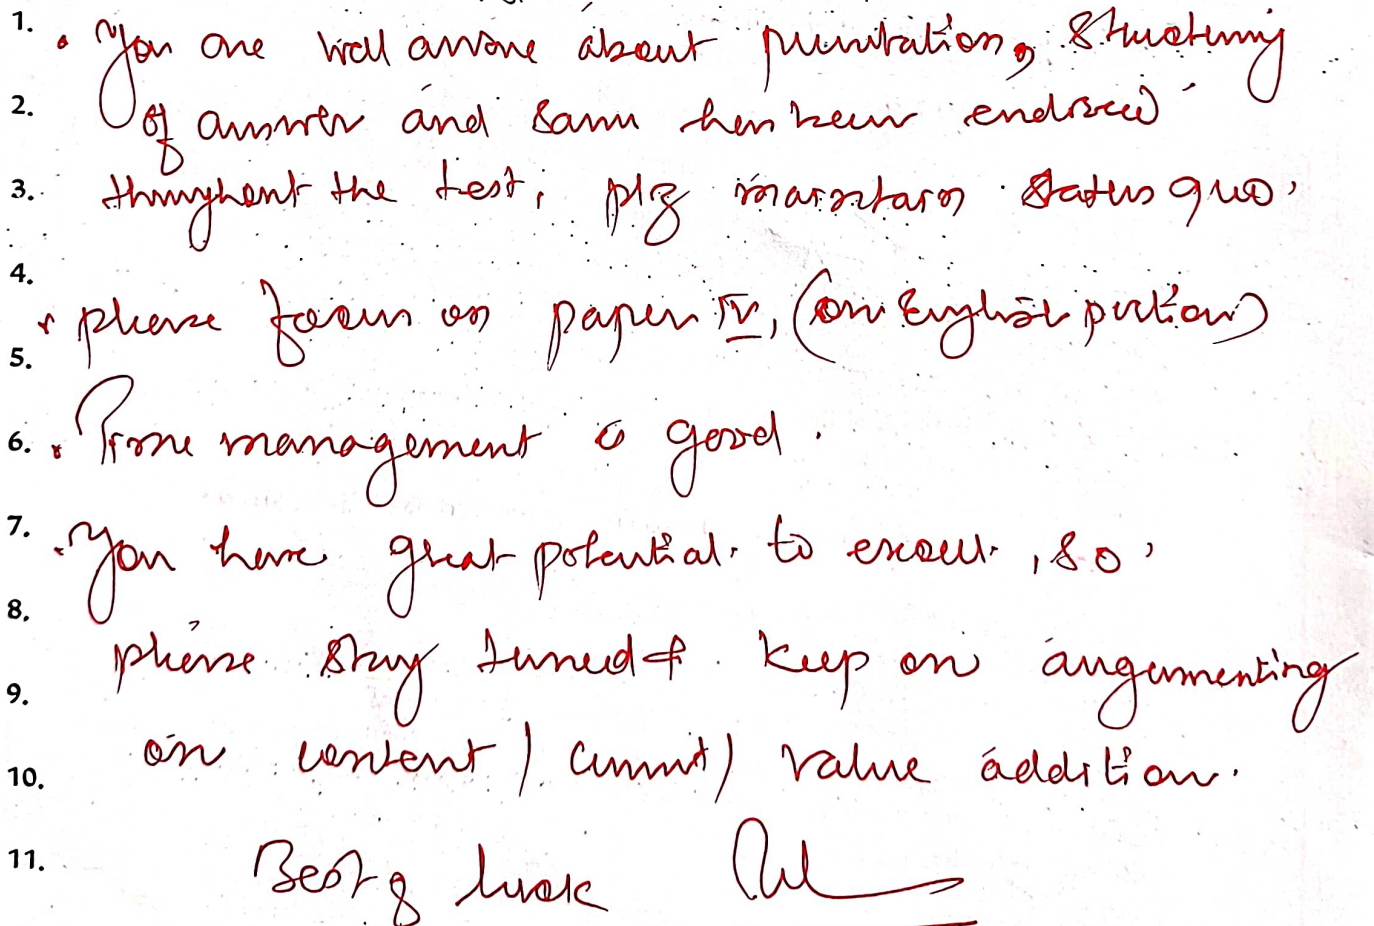 1.
• You are well aware about presentation, structuring
2.
of answer and same has been endorsed
3.
throughout the test, plz maintain status quo.
4.
• please focus on paper IV, (on English portion)
5.
6.
• Time management is good.
7.
• You have great potential to excell, so,
8.
please stay tuned & keep on augumenting
9.
on content / current / value addition.
10.
11.
Best of luck